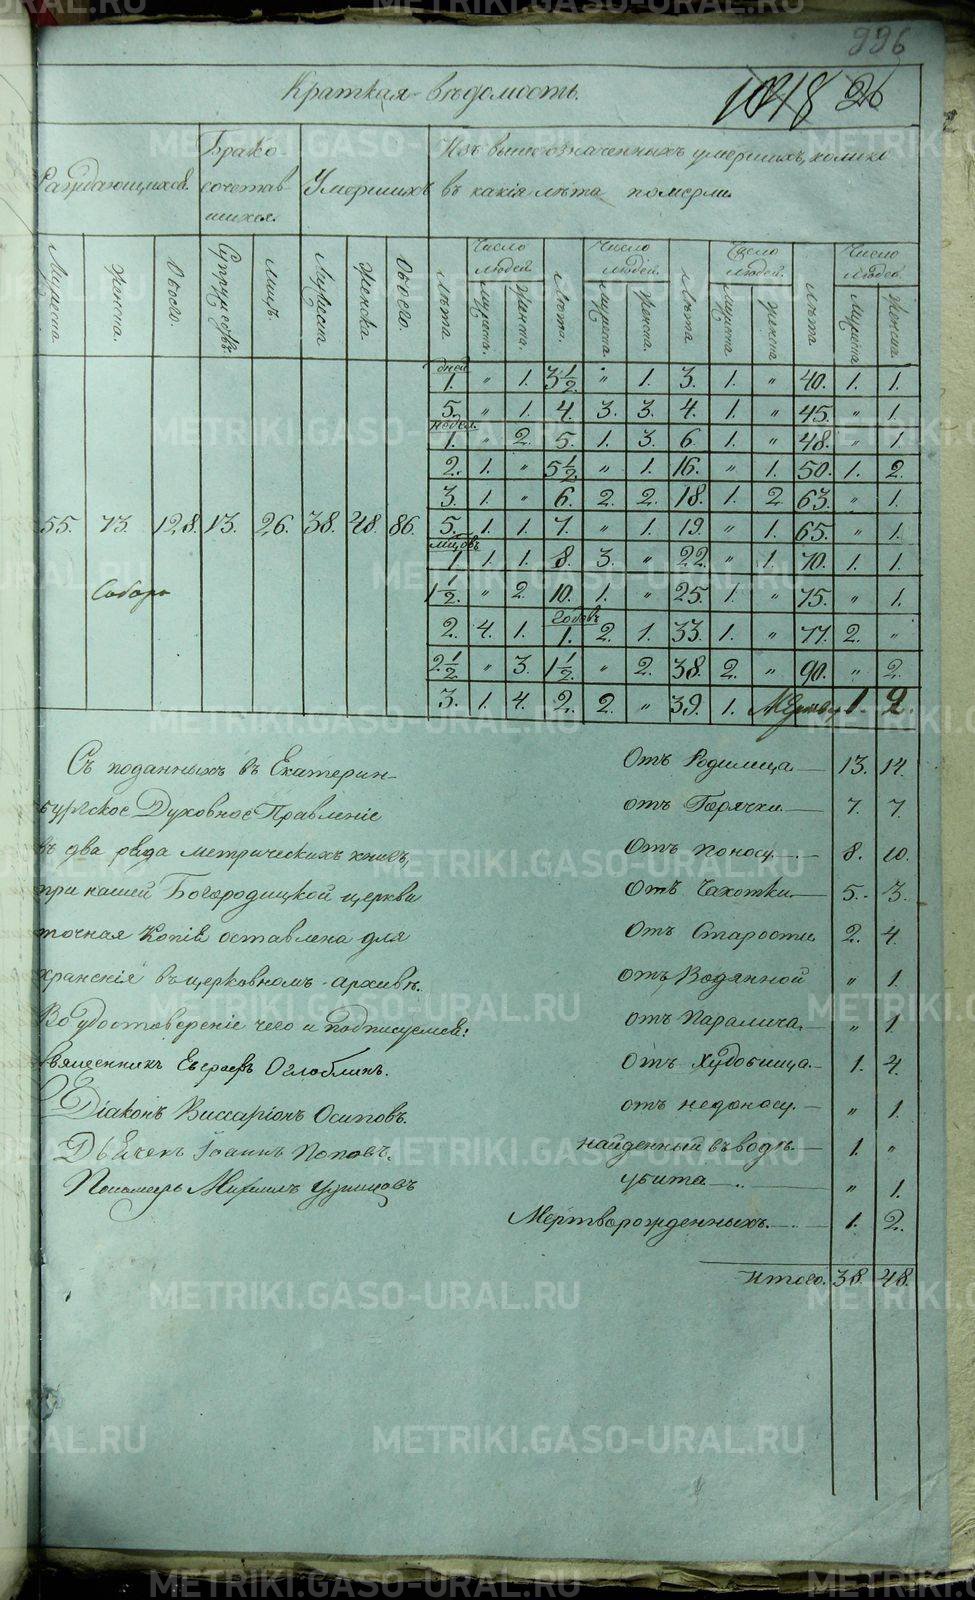 996
Краткая вѣдомость.
1018 26
Раждающихся.
Брако
сочетав
шихся
Умершихъ
Изъ вышеозначенныхъ умершихъ, колико
въ какія лѣта померли
Мужеска. Женска. Обоего. Супружествъ. Лицъ. Мужеска Женска Обоего.
Лѣта Число людей. Мужеска. Женска. Лѣта. Число людей. Мужеска. Женска. Лѣта Число людей. Мужеска Женска Лѣта Число людей. Мужеска Женска
дней
1. " 1. 3½. " 1. 3. 1. " 40. 1. 1.
5. " 1. 4. 3. 3. 4. 1. " 45. " 1.
недел.
1. " 2. 5. 1. 3. 6. 1. " 48. " 1.
2. 1. " 5½ " 1. 16. " 1. 50. 1. 2.
3. 1. " 6. 2. 2. 18. 1. 2 63. " 1.
55. 73 128. 13. 26. 38. 48. 86. 5. 1. 1. 7. " 1. 19. " 1. 65. " 1.
мѣсцовъ
1 1. 1. 8. 3. " 22. " 1. 70. 1. 1.
Соборъ
1½. " 2. 10. 1. " 25. 1. " 75. " 1.
годовъ
2. 4. 1. 1. 2. 1. 33. 1. " 77. 2. "
2½ " 3. 1½ " 2. 38. 2. " 90. " 2.
3. 1. 4. 2. 2. " 39. 1. Мертвор. 1. 2.
Съ поданныхъ въ Екатерин-
бургское Духовное Правленіе
въ два ряда метрическихъ книгъ,
при нашей Богородицкой церкви
точная Копія оставлена для
храненія въ церковномъ архивѣ.
Во удостовереніе чего и подписуемся:
Священникъ Евграфъ Оглоблинъ.
Діаконъ Виссаріонъ Осиповъ.
Дьячекъ Іоаннъ Поповъ.
Пономарь Михаилъ
Отъ Родимца 13. 14.
отъ Горячки 7. 7.
Отъ Поносу 8. 10.
Отъ Чахотки 5. 3.
Отъ Старости 2. 4.
отъ Водянной " 1.
отъ Паралича " 1.
Отъ Худобища 1. 4.
отъ недоносу " 1.
найденный въ водѣ 1. "
убита " 1.
Мертворожденныхъ. 1. 2.
итого. 38. 48.